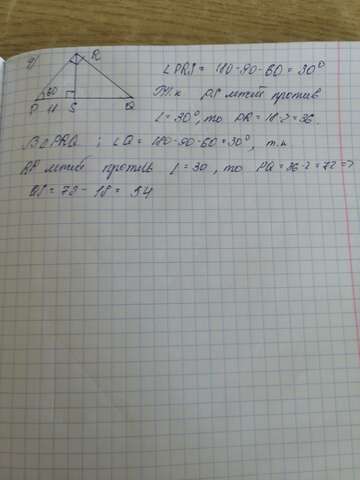 2)
R
60
P 18 S Q
∠PRS = 180-90-60 = 30°
Т.к PS лежит против
∠ = 30°, то PR = 18·2 = 36.
В △ PRQ ; ∠Q = 180-90-60 = 30°, т.к
RP лежит против ∠ = 30, то PQ = 36·2 = 72 =>
QS = 72 - 18 = 54